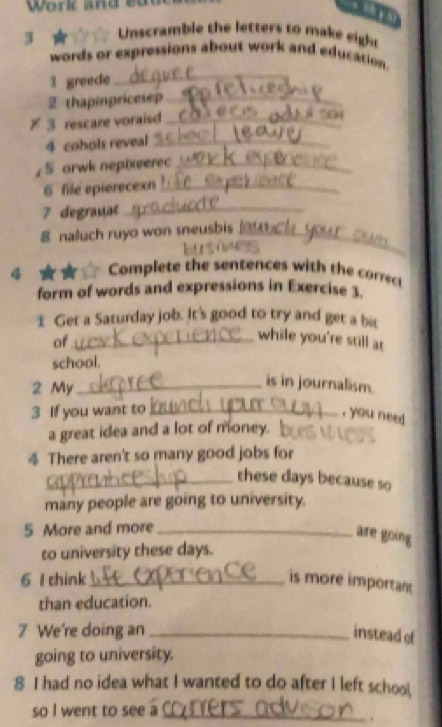 Work and
3 ★☆☆ Unscramble the letters to make eight
words or expressions about work and education.
1 greede degree
2 thapinpricesep
✗ 3 rescare voraisd
4 cohols reveal school leave
5 orwk nepixeerec work
6 file epierecexn life experience
7 degrauat graduate
8 naluch ruyo won sneusbis launch your own
business
4 ★★☆ Complete the sentences with the correct
form of words and expressions in Exercise 3.
1 Get a Saturday job. It's good to try and get a bit
of work experience while you're still at
school.
2 My degree is in journalism.
3 If you want to launch your own , you need
a great idea and a lot of money. business
4 There aren't so many good jobs for
apprenticeship these days because so
many people are going to university.
5 More and more are going
to university these days.
6 I think life experience is more important
than education.
7 We're doing an instead of
going to university.
8 I had no idea what I wanted to do after I left school,
so I went to see a carrers advison .